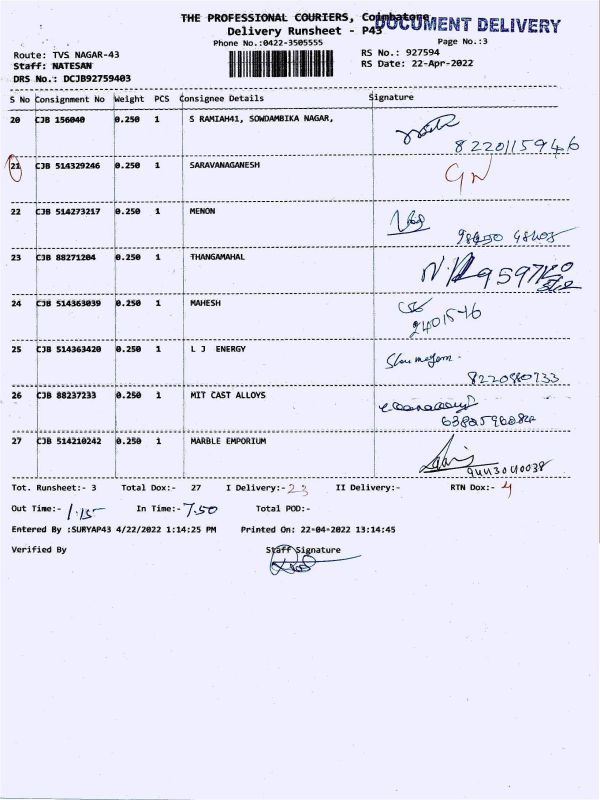 THE PROFESSIONAL COURIERS, Coimbatore
DOCUMENT DELIVERY
Delivery Runsheet - P43
Phone No.:0422-3505555
Page No.:3
Route: TVS NAGAR-43
RS No.: 927594
Staff: NATESAN
RS Date: 22-Apr-2022
DRS No.: DCJB92759403
S No Consignment No Weight PCS Consignee Details Signature
20 CJB 156040 0.250 1 S RAMIAH41, SOWDAMBIKA NAGAR,
8220115946
21 CJB 514329246 0.250 1 SARAVANAGANESH
GN
22 CJB 514273217 0.250 1 MENON
23 CJB 88271204 0.250 1 THANGAMAHAL
24 CJB 514363039 0.250 1 MAHESH
25 CJB 514363420 0.250 1 L J ENERGY
26 CJB 88237233 0.250 1 MIT CAST ALLOYS
27 CJB 514210242 0.250 1 MARBLE EMPORIUM
9443040038
Tot. Runsheet:- 3 Total Dox:- 27 I Delivery:- 23 II Delivery:- RTN Dox:- 4
Out Time:- 1.15 In Time:- 7.50 Total POD:-
Entered By :SURYAP43 4/22/2022 1:14:25 PM Printed On: 22-04-2022 13:14:45
Verified By Staff Signature